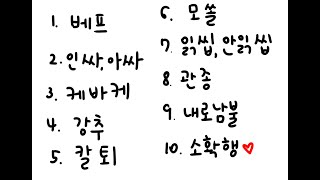 1. 베프
2. 인싸, 아싸
3. 케바케
4. 강추
5. 칼퇴
6. 모쏠
7. 읽씹, 안읽씹
8. 관종
9. 내로남불
10. 소확행♥